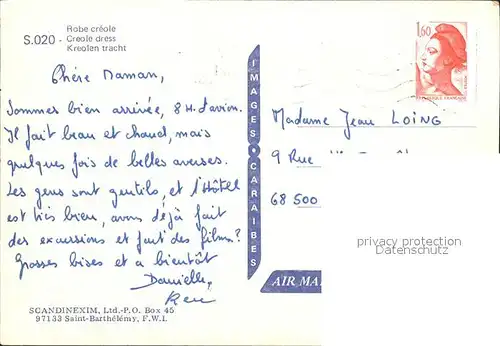 Robe créole
S.020 - Creole dress
Kreolen tracht
Chère Maman,
Sommes bien arrivée, 8 H. d'avion.
Il fait beau et chaud, mais
quelques fois de belles averses.
Les gens sont gentils, et l'Hôtel
est très bien, avons déjà fait
des excursions et fait des films?
Grosses bises et a bientôt
Danielle,
SCANDINEXIM, Ltd.-P.O. Box 45
97133 Saint-Barthélémy, F.W.I.
IMAGES CARAIBES
1,60
REPUBLIQUE FRANÇAISE
Madame Jean LOING
9 Rue
68 500
privacy protection
Datenschutz
AIR MA